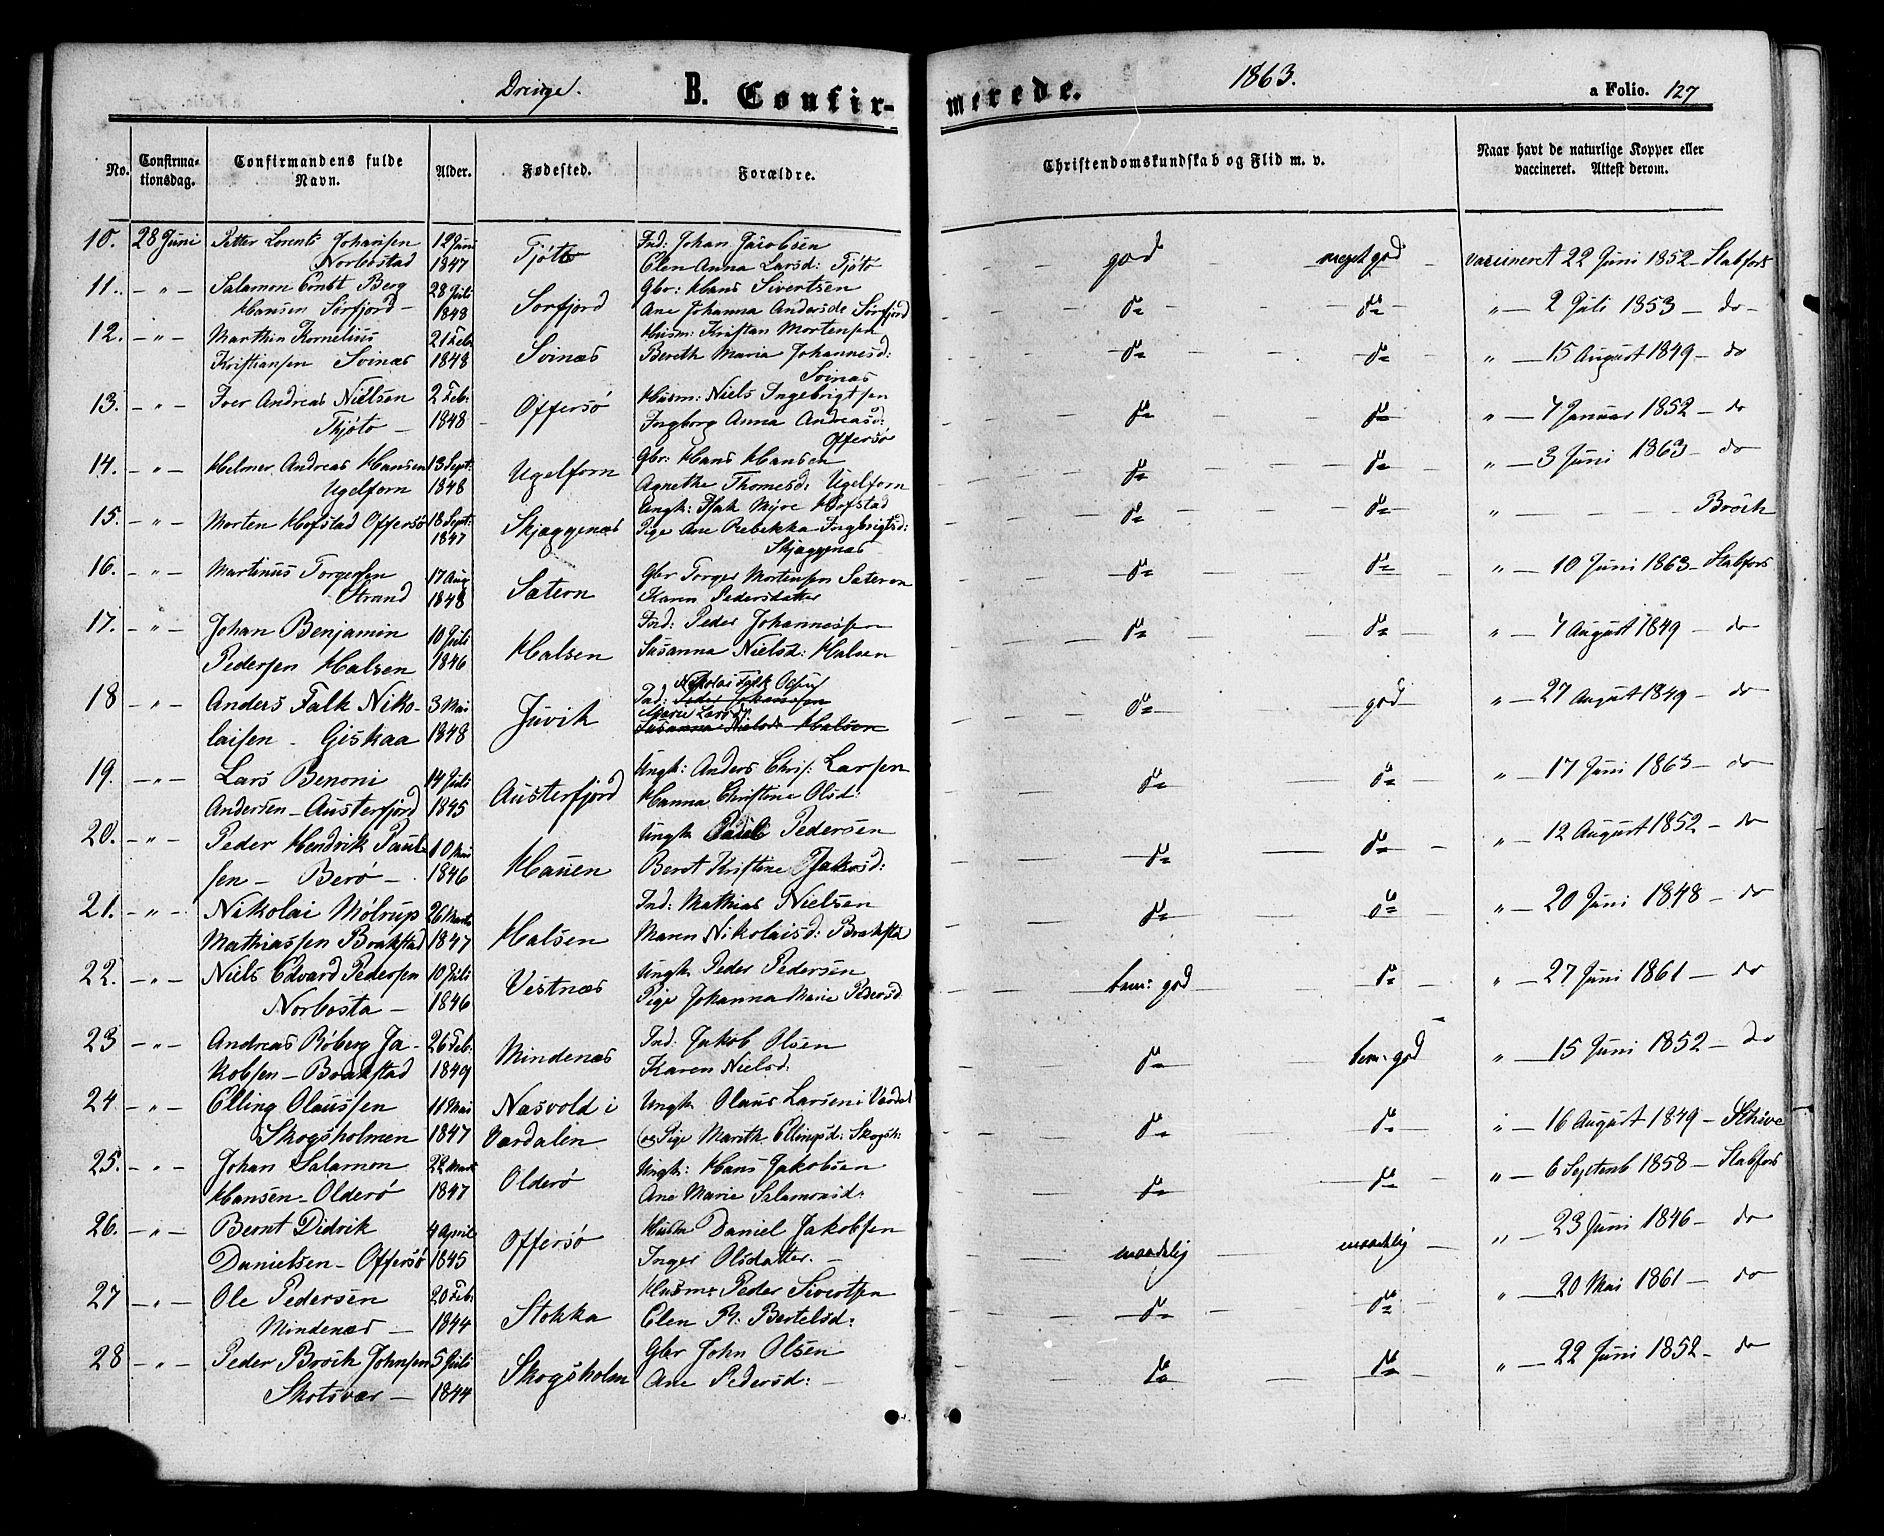 Drenge. B. Confirmerede. 1863. a Folio. 127
No. Confirmationsdag. Confirmandens fulde Navn. Alder. Fødested. Forældre. Christendomskundskab og Flid m. v. Naar havt de naturlige Kopper eller vaccineret. Attest derom.
10. 28 Juni Petter Lorents Johansen 12 Juni Tjøtto Ind: Johan Jacobsen god meget god vaccineret 22 Juni 1852 – Stabfors
Norbostad 1847 Elen Anna Larsd: Tjøto
11. – " – Salamon Ernst Berg 28 Juli Sorfjord Gbr: Hans Sivertsen do do " – 2 Juli 1853 – do –
Hansen Sörfjord – 1848 Ane Johanna Andersd: Sörfjord
12. – " – Marthin Kornelius 21 Feb. Svinæs Husm: Kristian Mortensen do do " – 15 August 1849 – do
Kristiansen Svinæs 1848 Bereth Maria Johannesd:
Svinæs
13. – " – Iver Andreas Nielsen 2 Feb: Offersø Husm: Niels Ingebrigtsen do do " – 7 Januar 1852 – do
Thjøto – 1848 – Ingborg Anna Andreasd:
Offersø
14. – " – Helmer Andreas Hansen 13 Sept: Ugelforn Gbr: Hans Hansen do do " – 3 Juni 1863 – do
Ugelforn 1848 Agnethe Thomesd: Ugelforn
15. – " – Morten Hofstad Offersø 18 Sept: Skjæggenæs Ungk: Isak Mijre Hofstad do do " – – – – Broch
1847 Pige Ane Rebekka Ingbrigtsd:
Skjæggnæs
16. – " – Martinus Torgersen 17 Aug Sætern Gbr Torger Mortensen Sæteren do do " – 10 Juni 1863 – Stabfors
Strand 1848 Karen Pedersdatter
17. – " – Johan Benjamin 10 Juli Halsen Ind: Peder Johannesen do do " – 7 August 1849 – do
Pedersen Halsen 1846 Susanna Nielsd: Halsen
18 – " – Anders Falk Niko- 3 Mai Juvik Ind: Nikolai Falk do god " – 27 August 1849 – do
laisen – Giskaa 1848 Susanna Nielsd: Halsen
19. – " – Lars Benoni 14 Juli Austerfjord Ungk: Anders Chris: Larsen do do " – 17 Juni 1863 – do
Andersen – Austerfjord 1845 Hanna Christine Olsd:
20. – " – Peder Hendrik Paul- 10 Mai Hauen Ungk Paul Pedersen do do " – 12 August 1852 – do
sen – Berø – 1846 Berdt Kristine Isaksd:
21. – " – Nikolai Mölrup 26 Marts Halsen Ind: Mathias Nielsen do do " – 20 Juni 1848 – do
Mathiassen Brakstad 1847 Maren Nikolaisd: Brakstd
22. – " – Niels Edvard Pedersen 10 Juli Vestnæs Ungk Peder Pedersen tem: god do " – 27 Juni 1861 – do
Norbosta – 1846 Pige Johanna Marie Pedersd
23 – " – Andreas Röberg Ja- 26 Feb: Mindenæs Ind: Jakob Olsen do tem: god " – 15 Juni 1852 – do
kobsen – Brakstad 1849 Karen Nielsd:
24 – " – Elling Olaussen 11 Mai Næsvold i Ungk Olaus Larsen i Værdal do do " – 16 August 1849 –
Skogsholmen 1847 Værdalen og Pige Marith Ellingsd: Skogsh:
25. – " – Johan Salamon 22 Mart Olderø Ungk: Hans Jakobsen do do " – 6 Septemb 1858 – Stabfors
Hansen – Olderø 1847 Ane Marie Salamonsd:
26. – " – Bernt Didrik 4 April Offersø Husm Daniel Jakobsen maadelig maadelig " – 23 Juni 1846 – do
Danielsen – Offersø 1845 Inger Olsdatter. –
27 – " – Ole Pedersen 20 Feb: Stokka Husm: Peder Sivertsen do do " – 20 Mai 1861 – do
Mindenæs – 1844 Elen R: Bertelsd:
28 – " – Peder Broch Johnsen 5 Juli Skogsholm Gbr John Olsen do do " – 22 Juni 1852 – do
Skotsvær – 1844 Ane Pedersd: –